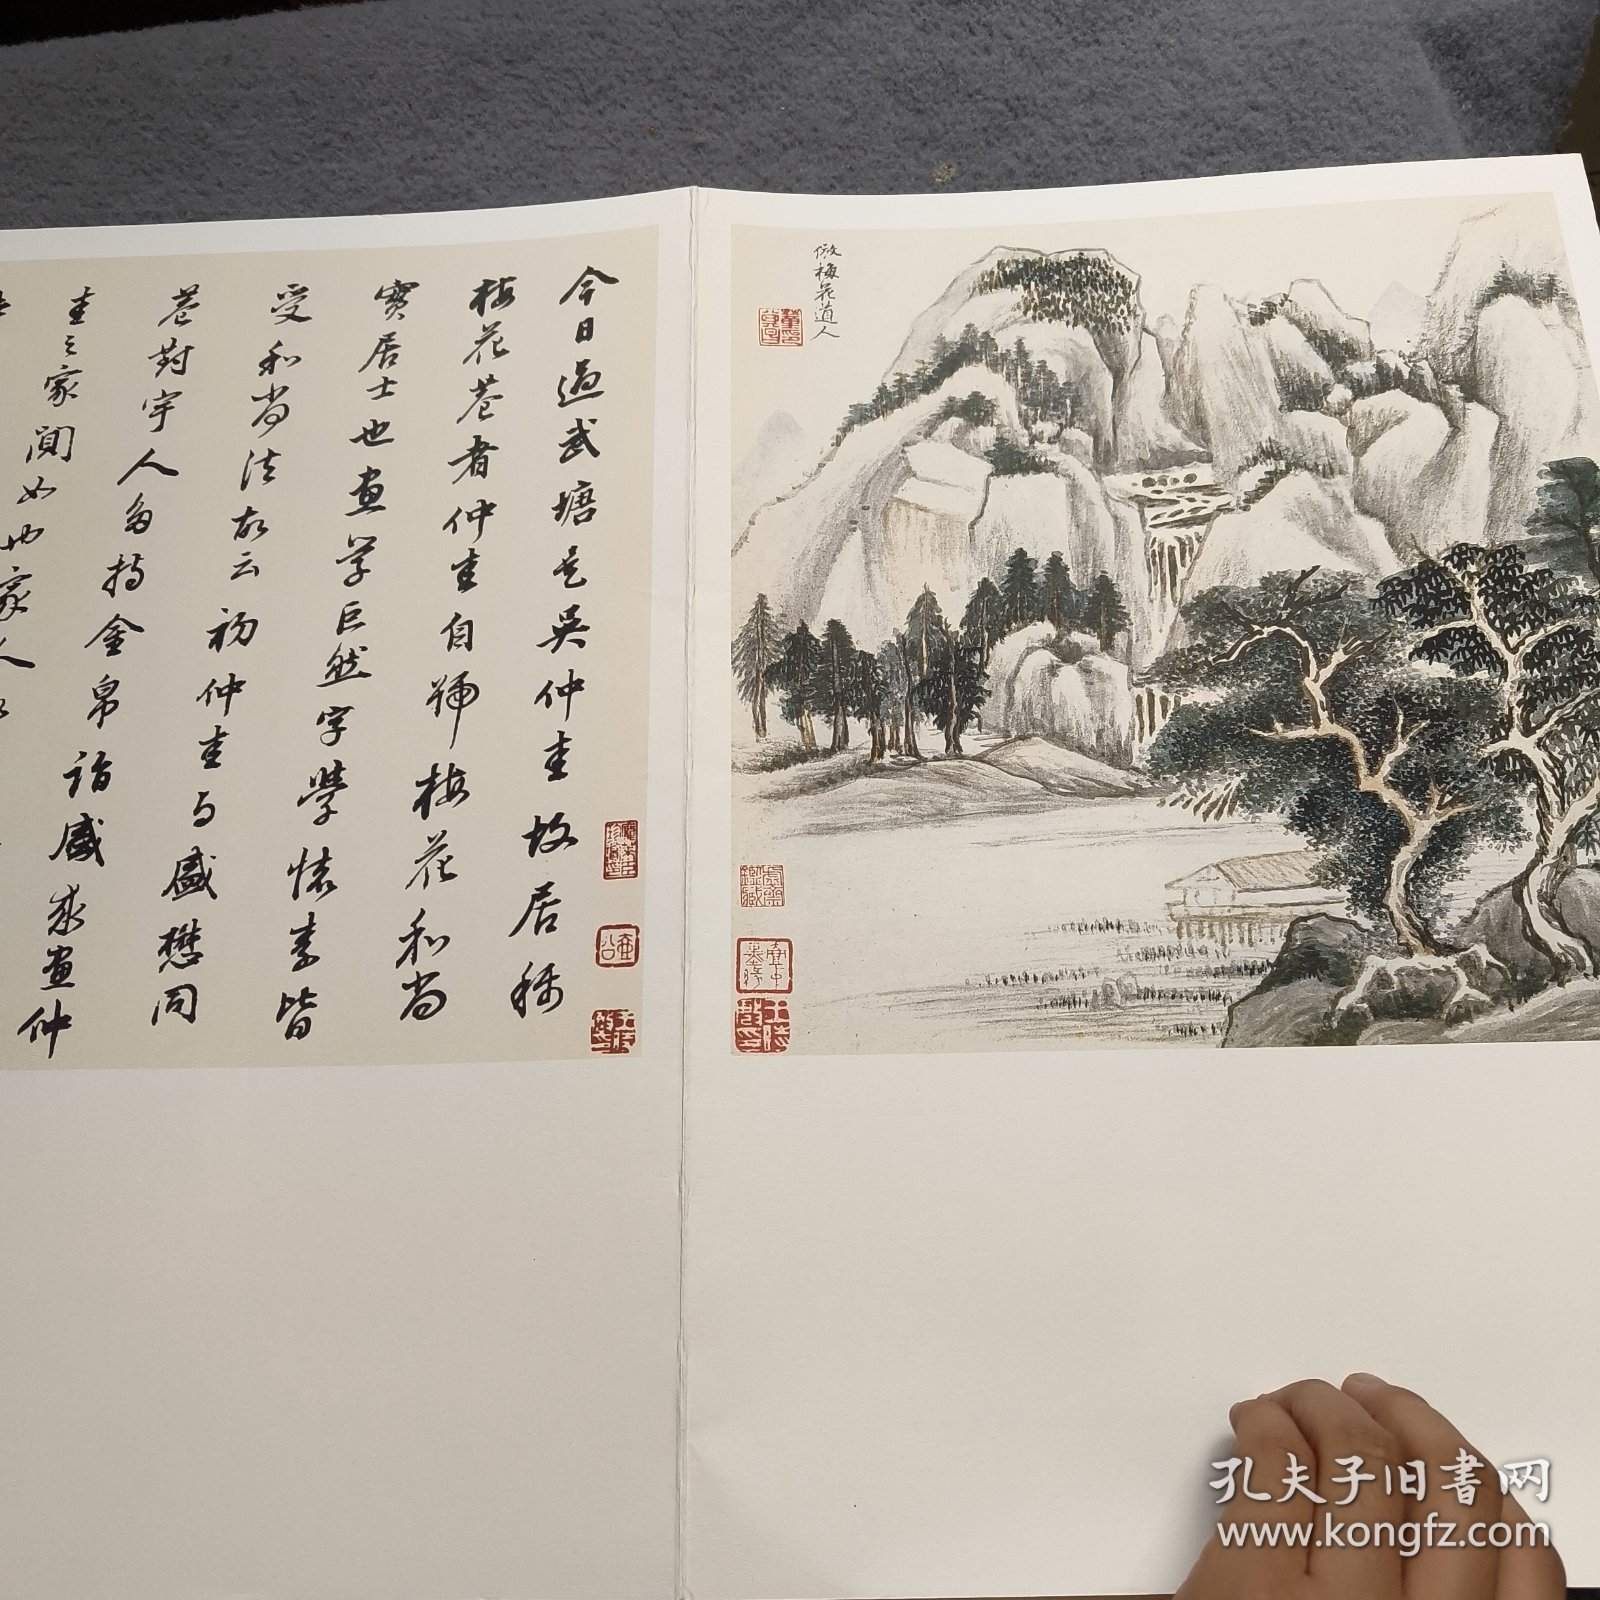 倣梅花道人
今日過武塘是吳仲圭故居称
梅花菴者仲圭自號梅花和尚
實居士也畫学巨然字學懷素皆
受和尚法故云初仲圭与盛懋同
菴對宇人多持金帛詣盛求畫仲
圭之家闃如也家人
孔夫子旧书网
www.kongfz.com